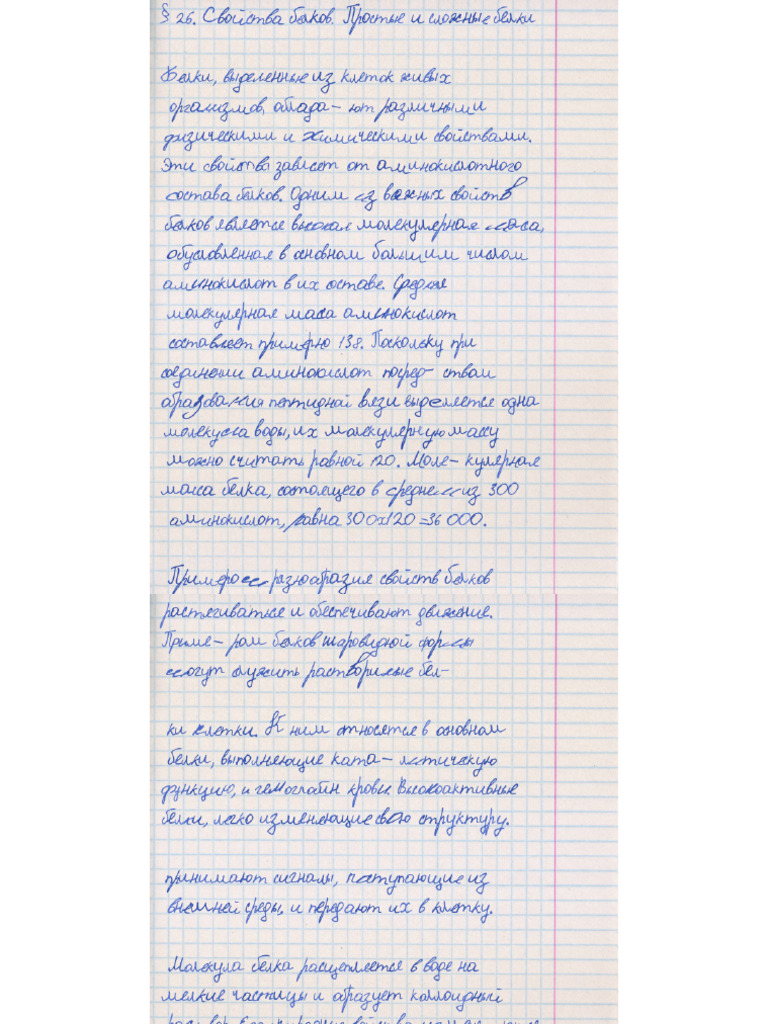 § 26. Свойства белков. Простые и сложные белки
Белки, выделенные из клеток живых
организмов, облада- ют различными
физическими и химическими свойствами.
Эти свойства зависят от аминокислотного
состава белков. Одним из важных свойств
белков является высокая молекулярная масса,
обусловленная в основном большим числом
аминокислот в их составе. Средняя
молекулярная масса аминокислот
составляет примерно 138. Поскольку при
соединении аминокислот посред- ством
образования пептидной вязи выделяется одна
молекула воды, их молекулярную массу
можно считать равной 120. Моле- кулярная
масса белка, состоящего в среднем из 300
аминокислот, равна 300x120=36 000.
Примером разнообразия свойств белков
растягиваться и обеспечивают движение.
Приме- ром белков шаровидной формы
могут служить растворимые бел-
ки клетки. К ним относятся в основном
белки, выполняющие ката- литическую
функцию, и гемоглобин крови. Высокоактивные
белки, легко изменяющие свою структуру.
принимают сигналы, поступающие из
внешней среды, и передают их в клетку.
Молекула белка расщепляется в воде на
мелкие частицы и образует коллоидный